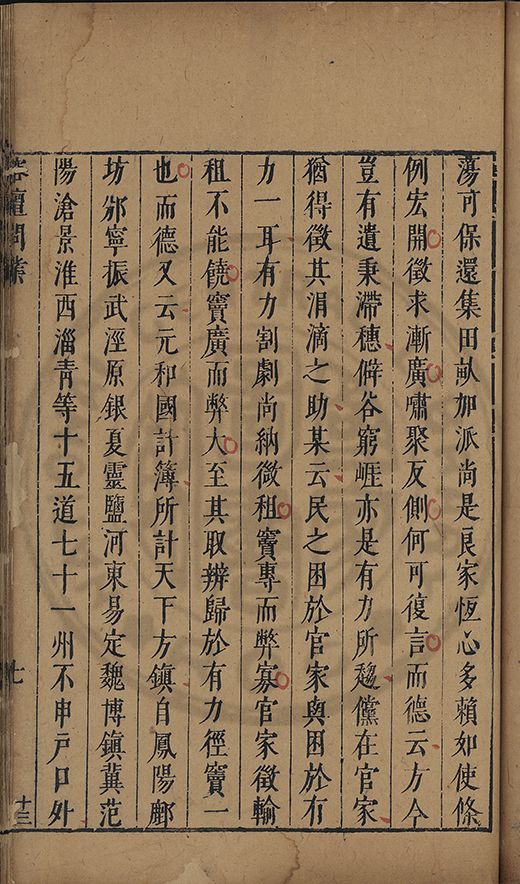 蕩可保還集田畝加派尚是良家恆心多賴如使條
例宏開徵求漸廣嘯聚反側何可復言而德云方今
豈有遺秉滯穗僻谷窮崕亦是有力所趨儻在官家
猶得徵其涓滴之助某云民之困於官家與困於有
力一耳有力割劇尚納微租竇專而弊寡官家徵輸
租不能饒竇廣而弊大至其取辨歸於有力徑竇一
也而德又云元和國計簿所計天下方鎮自鳳陽鄜
坊邠寧振武涇原銀夏靈鹽河東易定魏博鎮冀范
陽滄景淮西淄青等十五道七十一州不申戸口外
壇問業
七
十三